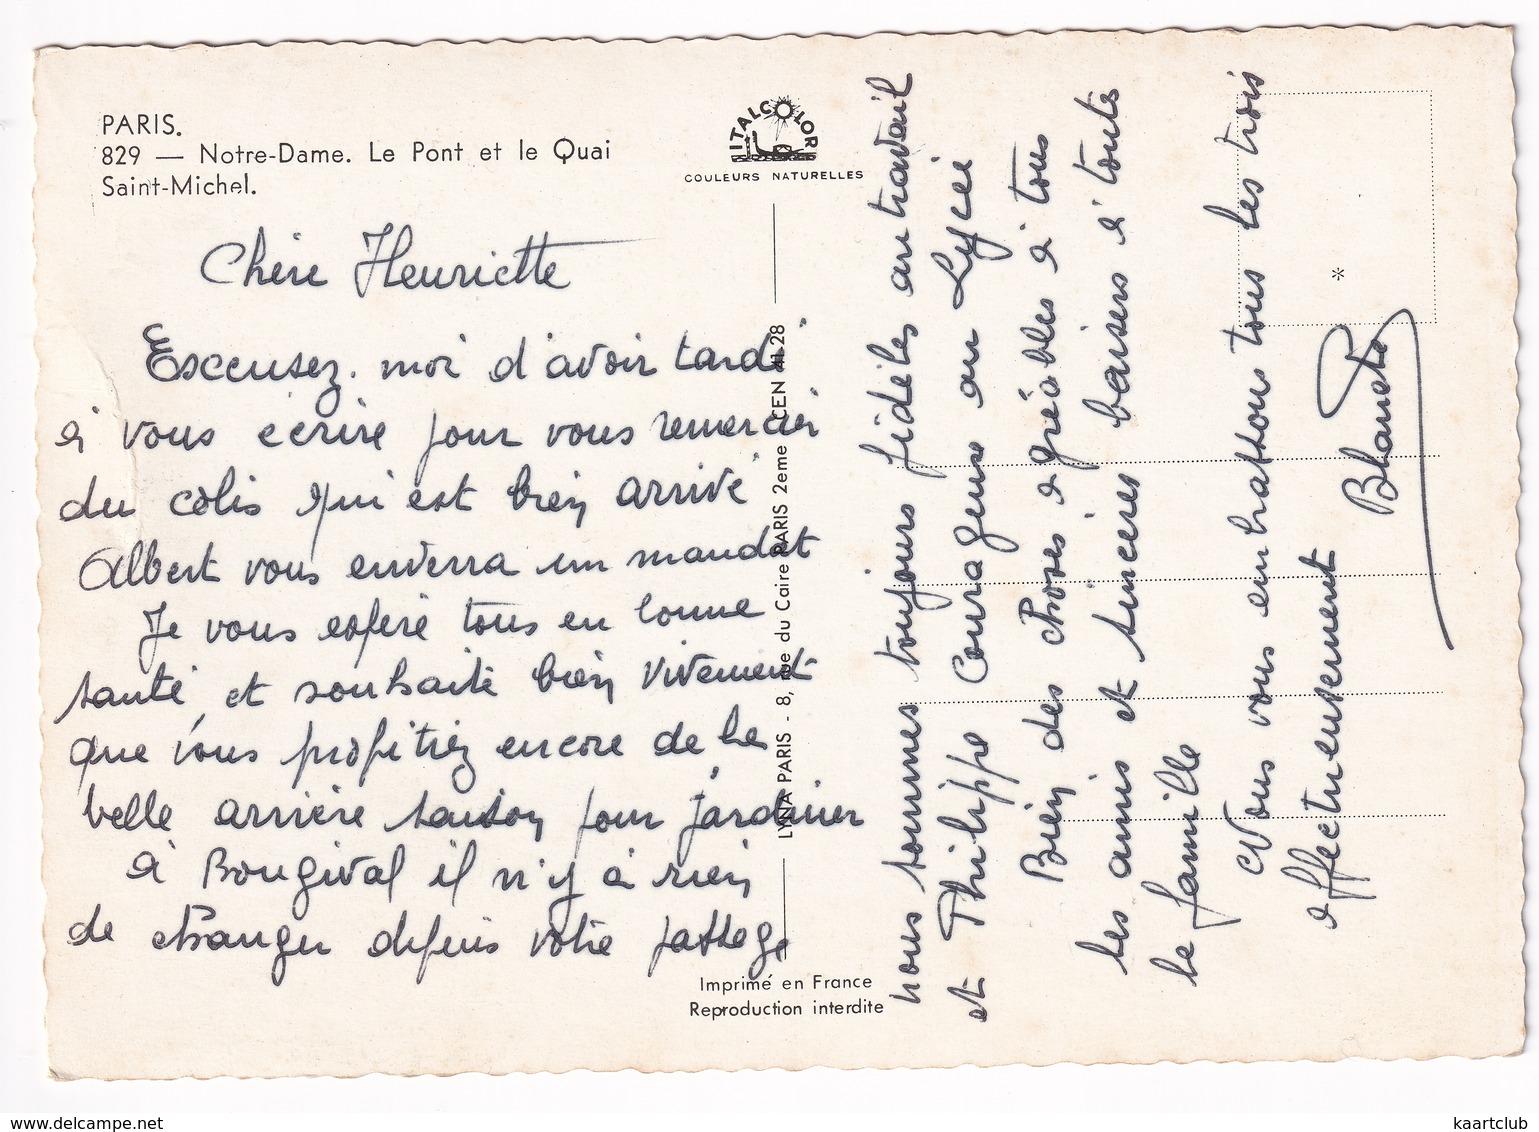 PARIS.
829 — Notre-Dame. Le Pont et le Quai
Saint-Michel.
ITALCOLOR
COULEURS NATURELLES
Chère Henriette
Excusez. moi d'avoir tardé
à vous écrire pour vous remercier
du colis qui est bien arrivé
Albert vous enverra un mandat
Je vous espère tous en bonne
santé et souhaite bien vivement
que vous profitiez encore de la
belle arrière saison pour jardiner
à Bougival il n'y à rien
de changer depuis votre passage
LYNA PARIS - 8, rue du Caire PARIS 2eme CEN 41-28
Imprimé en France
Reproduction interdite
nous sommes toujours fidèles au travail
et Philippe Courageuse au Lycée
Bien des choses agréables à tous
les amis et sincères baisers à toute
la famille
Vous vous embrassons tous les trois
affectueusement
Blanche
www.delcampe.net
kaartclub